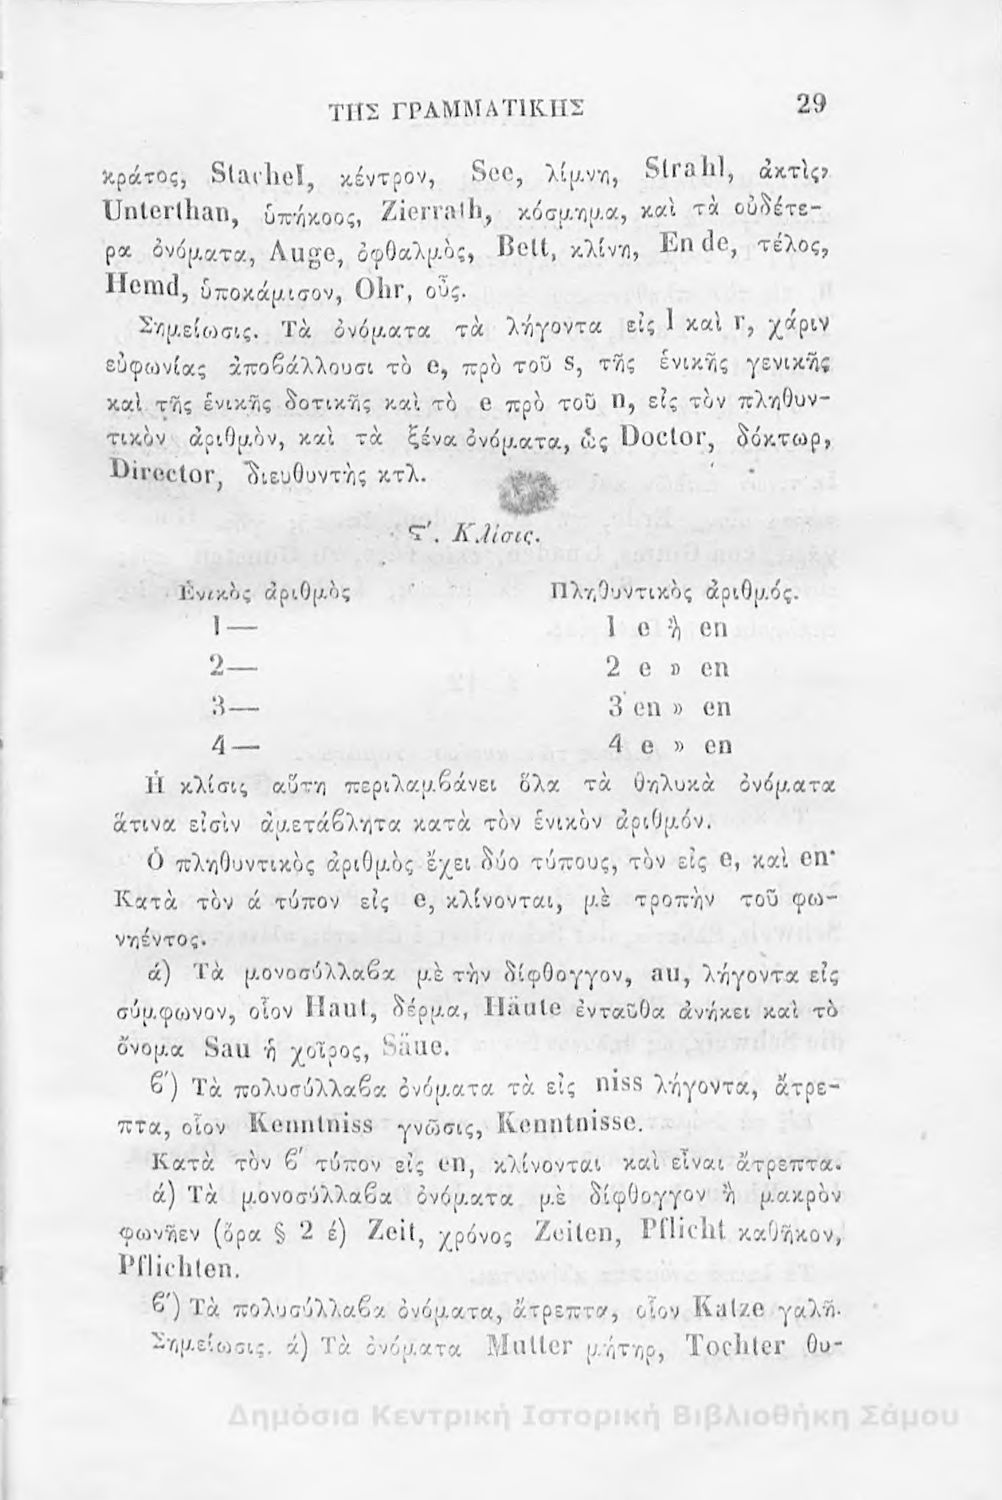 ΤΗΣ ΓΡΑΜΜΑΤΙΚΗΣ 29
κράτος, Stachel, κέντρον, See, λίμνη, Strahl, ἀκτὶς,
Unterthan, ὑπήκοος, Zierrath, κόσμημα, καὶ τὰ οὐδέτε-
ρα ὀνόματα, Auge, ὀφθαλμὸς, Bett, κλίνη, Ende, τέλος,
Hemd, ὑποκάμισον, Ohr, οὖς.
Σημείωσις. Τὰ ὀνόματα τὰ λήγοντα εἰς l καὶ r, χάριν
εὐφωνίας ἀποβάλλουσι τὸ e, πρὸ τοῦ s, τῆς ἑνικῆς γενικῆς
καὶ τῆς ἑνικῆς δοτικῆς καὶ τὸ e πρὸ τοῦ n, εἰς τὸν πληθυν-
τικὸν ἀριθμὸν, καὶ τὰ ξένα ὀνόματα, ὡς Doctor, δόκτωρ,
Director, διευθυντὴς κτλ.
ϛ΄. Κλίσις.
Ἑνικὸς ἀριθμὸς Πληθυντικὸς ἀριθμός.
1— 1 e ἢ en
2— 2 e » en
3— 3 en » en
4— 4 e » en
Ἡ κλίσις αὕτη περιλαμβάνει ὅλα τὰ θηλυκὰ ὀνόματα
ἅτινα εἰσὶν ἀμετάβλητα κατὰ τὸν ἑνικὸν ἀριθμόν.
Ὁ πληθυντικὸς ἀριθμὸς ἔχει δύο τύπους, τὸν εἰς e, καὶ en·
Κατὰ τὸν ά τύπον εἰς e, κλίνονται, μὲ τροπὴν τοῦ φω-
νηέντος.
ά) Τὰ μονοσύλλαβα μὲ τὴν δίφθογγον, au, λήγοντα εἰς
σύμφωνον, οἷον Haut, δέρμα, Häute ἐνταῦθα ἀνήκει καὶ τὸ
ὄνομα Sau ἡ χοῖρος, Säue.
β΄) Τὰ πολυσύλλαβα ὀνόματα τὰ εἰς niss λήγοντα, ἄτρε-
πτα, οἷον Kenntniss γνῶσις, Kenntnisse.
Κατὰ τὸν β΄ τύπον εἰς en, κλίνονται καὶ εἶναι ἄτρεπτα.
ά) Τὰ μονοσύλλαβα ὀνόματα μὲ δίφθογγον ἢ μακρὸν
φωνῆεν (ὅρα § 2 έ) Zeit, χρόνος Zeiten, Pflicht καθῆκον,
Pflichten.
β΄) Τὰ πολυσύλλαβα ὀνόματα, ἄτρεπτα, οἷον Katze γαλῆ.
Σημείωσις. ά) Τὰ ὀνόματα Mutter μήτηρ, Tochter θυ-
Δημόσια Κεντρική Ιστορική Βιβλιοθήκη Σάμου